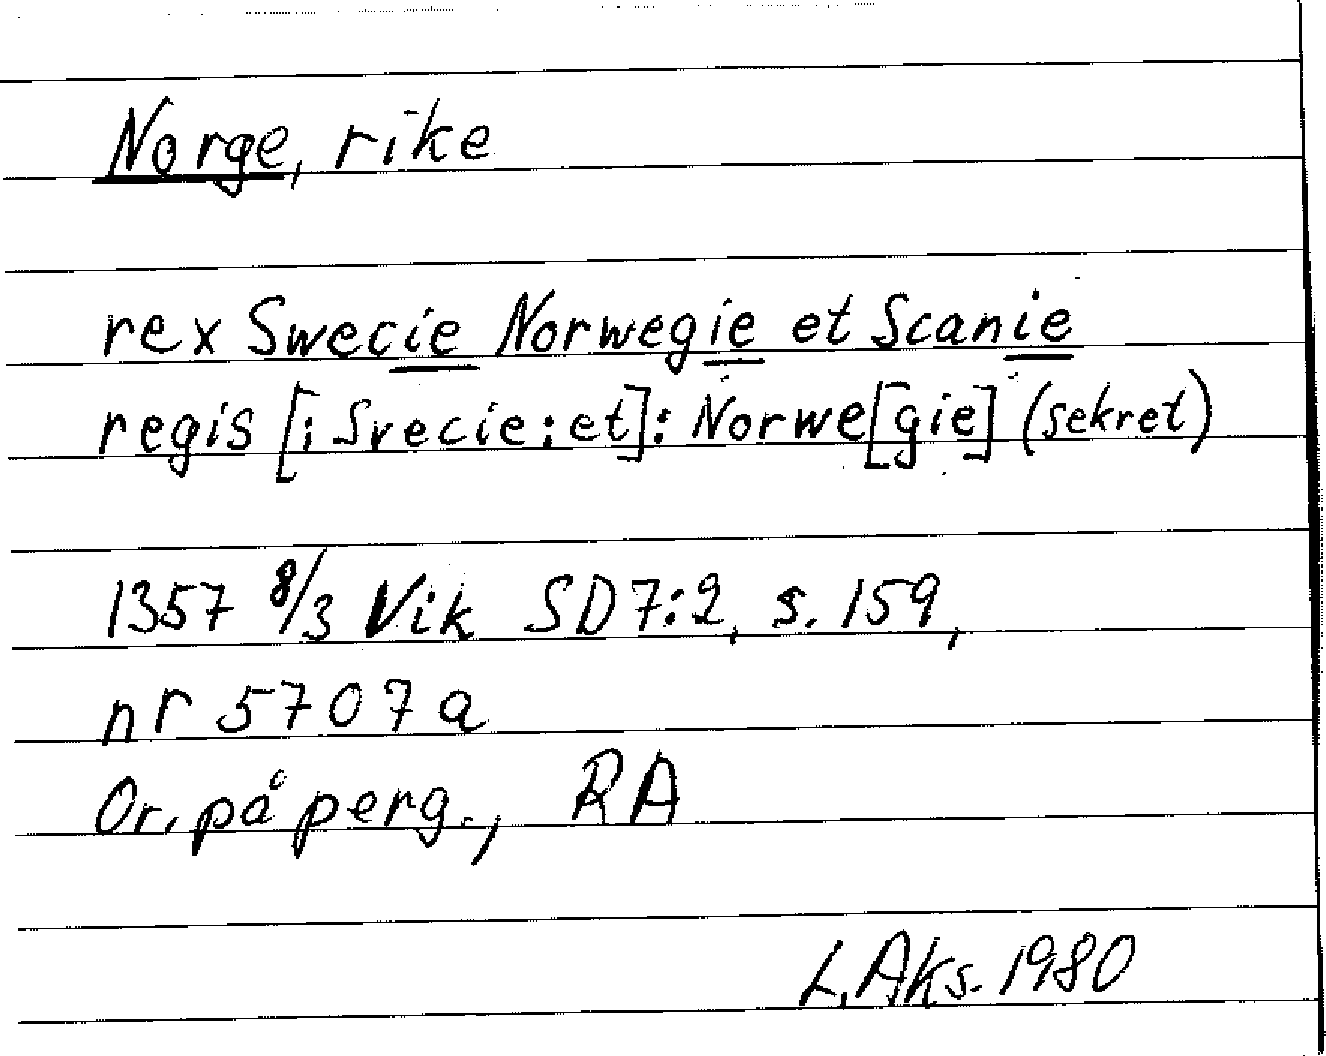 Norge, rike
rex Swecie Norwegie et Scanie
regis [: Svecie : et] : Norwe[gie] (sekret)
1357 8/3 Vik SD 7:2, s. 159,
nr 5707 a
Or. på perg., RA
L. Aks. 1980